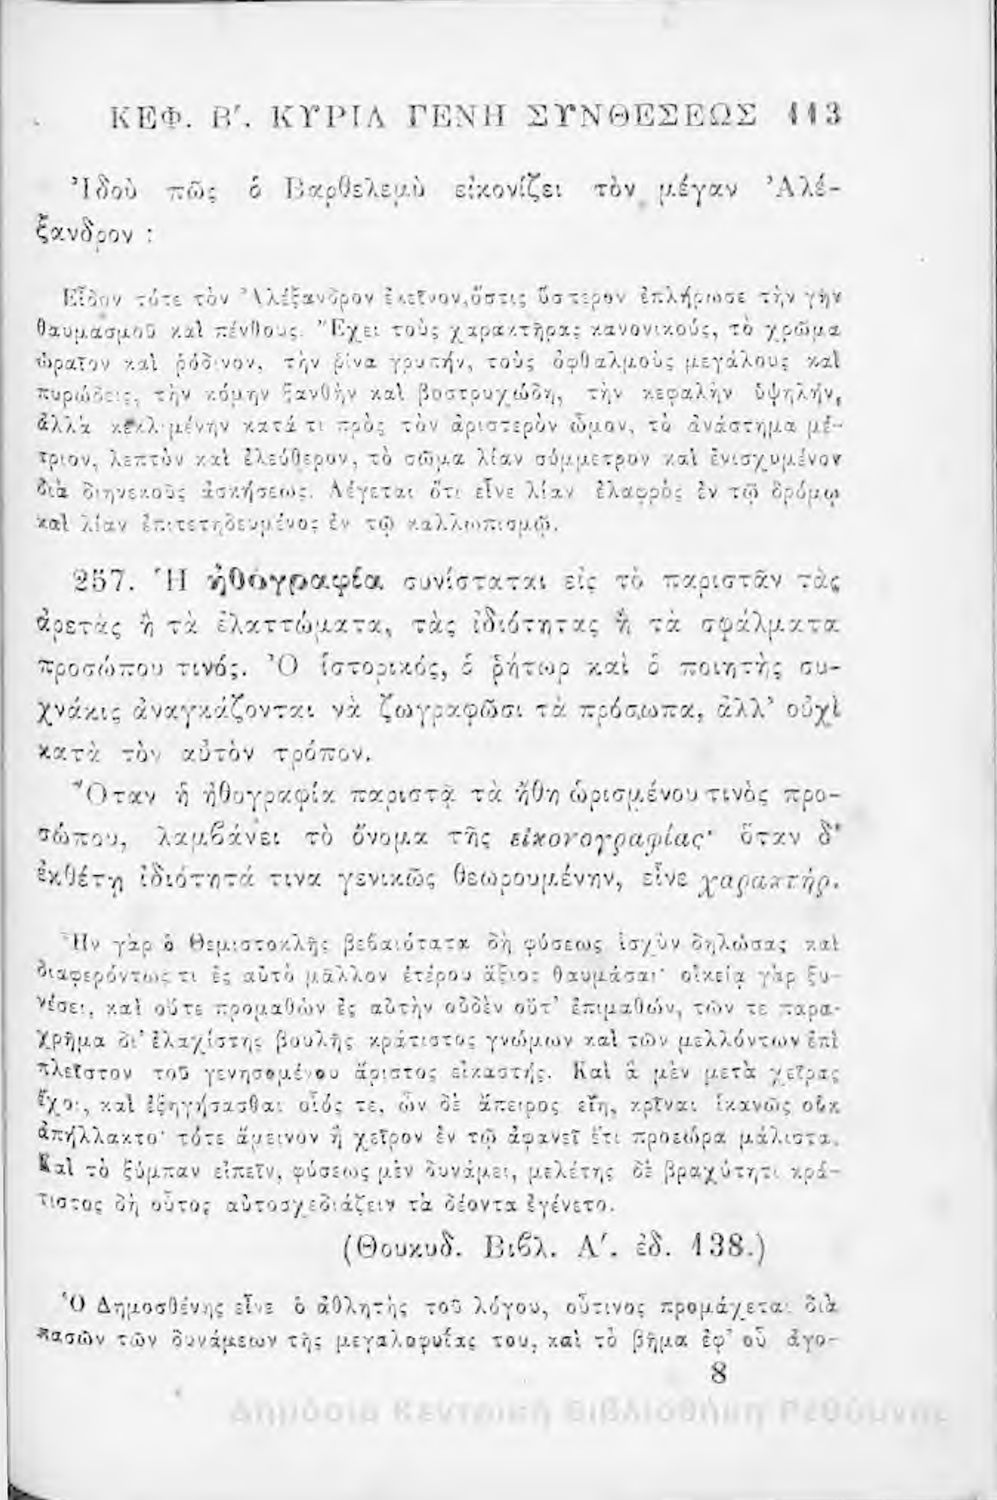 ΚΕΦ. Β'. ΚΥΡΙΑ ΓΕΝΗ ΣΥΝΘΕΣΕΩΣ 113
Ἰδοὺ πῶς ὁ Βαρθελεμὺ εἰκονίζει τὸν μέγαν Ἀλέ-
ξανδρον :
Εἶδον τότε τὸν Ἀλέξανδρον ἐκεῖνον, ὅστις ὕστερον ἐπλήρωσε τὴν γῆν
θαυμασμοῦ καὶ πένθους. Ἔχει τοὺς χαρακτῆρας κανονικούς, τὸ χρῶμα
ὡραῖον καὶ ῥόδινον, τὴν ῥῖνα γρυπήν, τοὺς ὀφθαλμοὺς μεγάλους καὶ
πυρώδεις, τὴν κόμην ξανθὴν καὶ βοστρυχώδη, τὴν κεφαλὴν ὑψηλήν,
ἀλλὰ κεκλιμένην κατά τι πρὸς τὸν ἀριστερὸν ὦμον, τὸ ἀνάστημα μέ-
τριον, λεπτὸν καὶ ἐλεύθερον, τὸ σῶμα λίαν σύμμετρον καὶ ἐνισχυμένον
διὰ διηνεκοῦς ἀσκήσεως. Λέγεται ὅτι εἶνε λίαν ἐλαφρὸς ἐν τῷ δρόμῳ
καὶ λίαν ἐπιτετηδευμένος ἐν τῷ καλλωπισμῷ.
257. Ἡ ἠθογραφία συνίσταται εἰς τὸ παριστᾶν τὰς
ἀρετὰς ἢ τὰ ἐλαττώματα, τὰς ἰδιότητας ἢ τὰ σφάλματα
προσώπου τινός. Ὁ ἱστορικός, ὁ ῥήτωρ καὶ ὁ ποιητὴς συ-
χνάκις ἀναγκάζονται νὰ ζωγραφῶσι τὰ πρόσωπα, ἀλλ' οὐχὶ
κατὰ τὸν αὐτὸν τρόπον.
Ὅταν ἡ ἠθογραφία παριστᾷ τὰ ἤθη ὡρισμένου τινὸς προ-
σώπου, λαμβάνει τὸ ὄνομα τῆς εἰκονογραφίας· ὅταν δ'
ἐκθέτῃ ἰδιότητά τινα γενικῶς θεωρουμένην, εἶνε χαρακτήρ.
Ἦν γὰρ ὁ Θεμιστοκλῆς βεβαιότατα δὴ φύσεως ἰσχὺν δηλώσας καὶ
διαφερόντως τι ἐς αὐτὸ μᾶλλον ἑτέρου ἄξιος θαυμάσαι· οἰκείᾳ γὰρ ξυ-
νέσει, καὶ οὔτε προμαθὼν ἐς αὐτὴν οὐδὲν οὔτ' ἐπιμαθών, τῶν τε παρα-
χρῆμα δι' ἐλαχίστης βουλῆς κράτιστος γνώμων καὶ τῶν μελλόντων ἐπὶ
πλεῖστον τοῦ γενησομένου ἄριστος εἰκαστής. Καὶ ἃ μὲν μετὰ χεῖρας
ἔχοι, καὶ ἐξηγήσασθαι οἷός τε, ὧν δὲ ἄπειρος εἴη, κρῖναι ἱκανῶς οὐκ
ἀπήλλακτο· τότε ἄμεινον ἢ χεῖρον ἐν τῷ ἀφανεῖ ἔτι προεώρα μάλιστα.
Καὶ τὸ ξύμπαν εἰπεῖν, φύσεως μὲν δυνάμει, μελέτης δὲ βραχύτητι κρά-
τιστος δὴ οὗτος αὐτοσχεδιάζειν τὰ δέοντα ἐγένετο.
(Θουκυδ. Βιβλ. Α'. ἐδ. 138.)
Ὁ Δημοσθένης εἶνε ὁ ἀθλητὴς τοῦ λόγου, οὕτινος προμάχεται διὰ
πασῶν τῶν δυνάμεων τῆς μεγαλοφυΐας του, καὶ τὸ βῆμα ἐφ' οὗ ἀγο-
8
Δημόσια Κεντρική Βιβλιοθήκη Ρεθύμνης